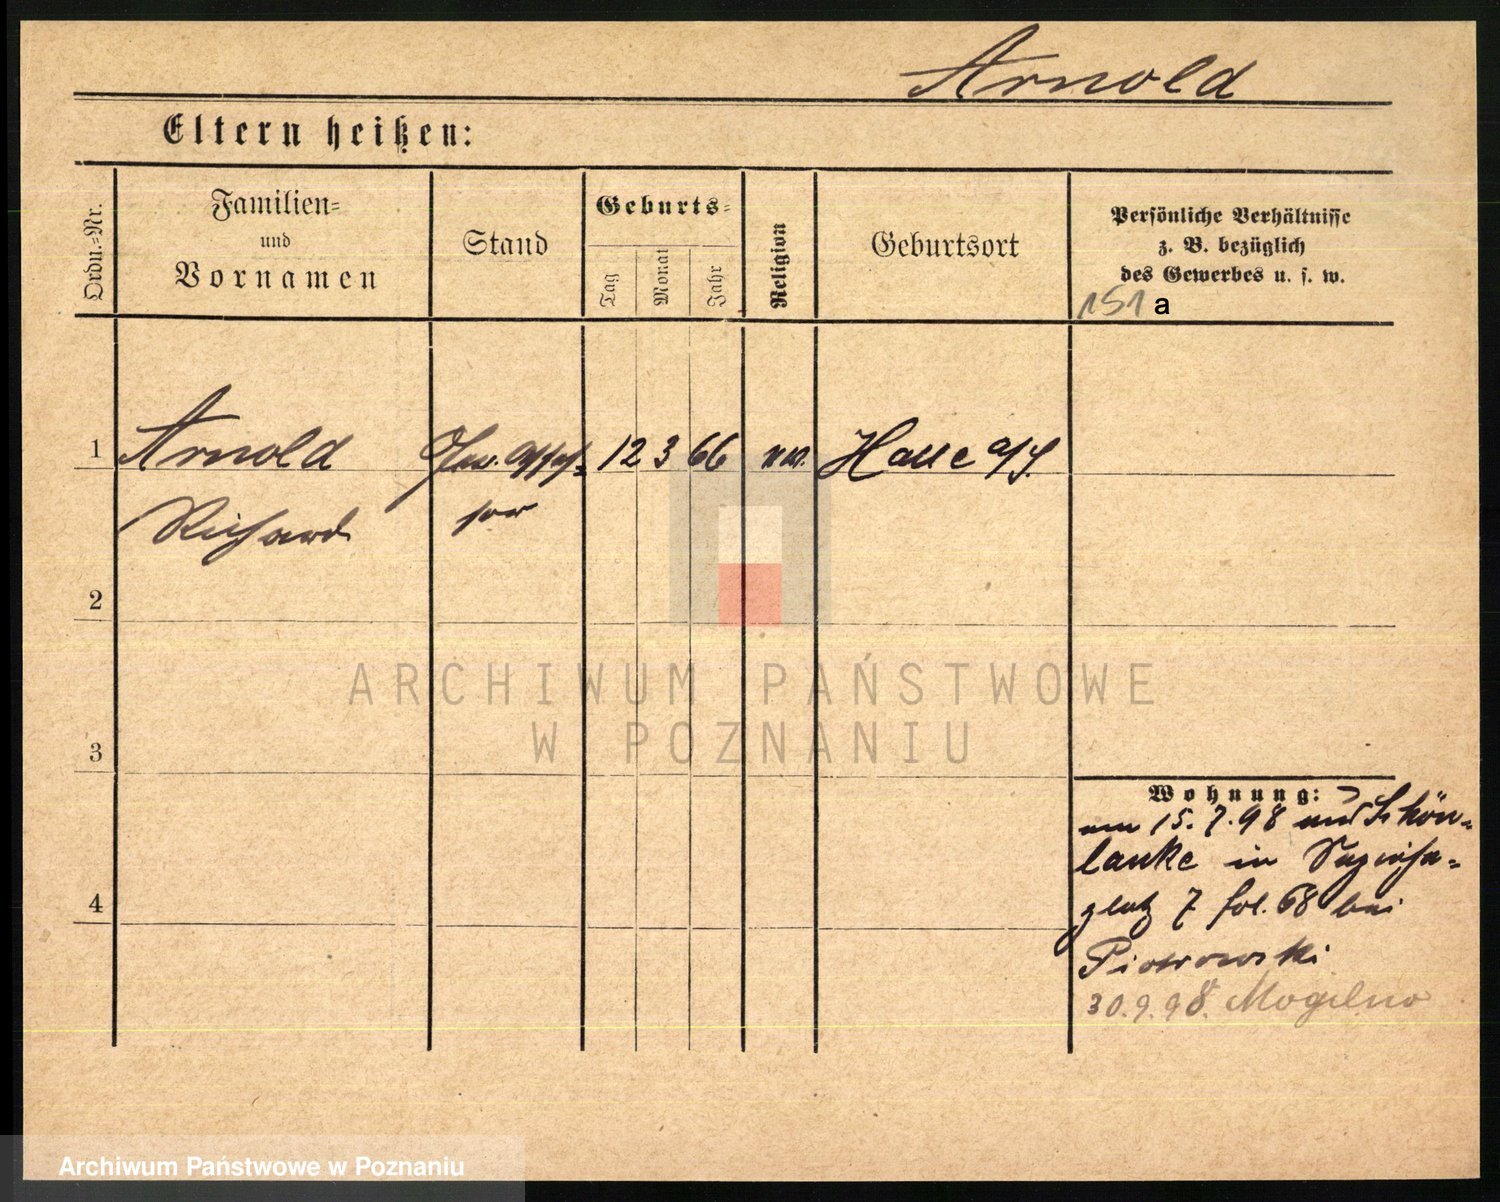 Arnold
Eltern heißen:
Ordn.=Nr.
Familien=
und
Vornamen
Stand
Geburts=
Tag
Monat
Jahr
Religion
Geburtsort
Persönliche Verhältnisse
z. B. bezüglich
des Gewerbes u. s. w.
151 a
1 Arnold 12 3 66 ev. Halle a/S.
Richard sor
2
3
4
Wohnung:
am 15. 7. 98 aus Schön-
lanke in
7 fol. 68 bei
Piotrowski
30.9.98. Mogilno
ARCHIWUM PAŃSTWOWE
W POZNANIU
Archiwum Państwowe w Poznaniu